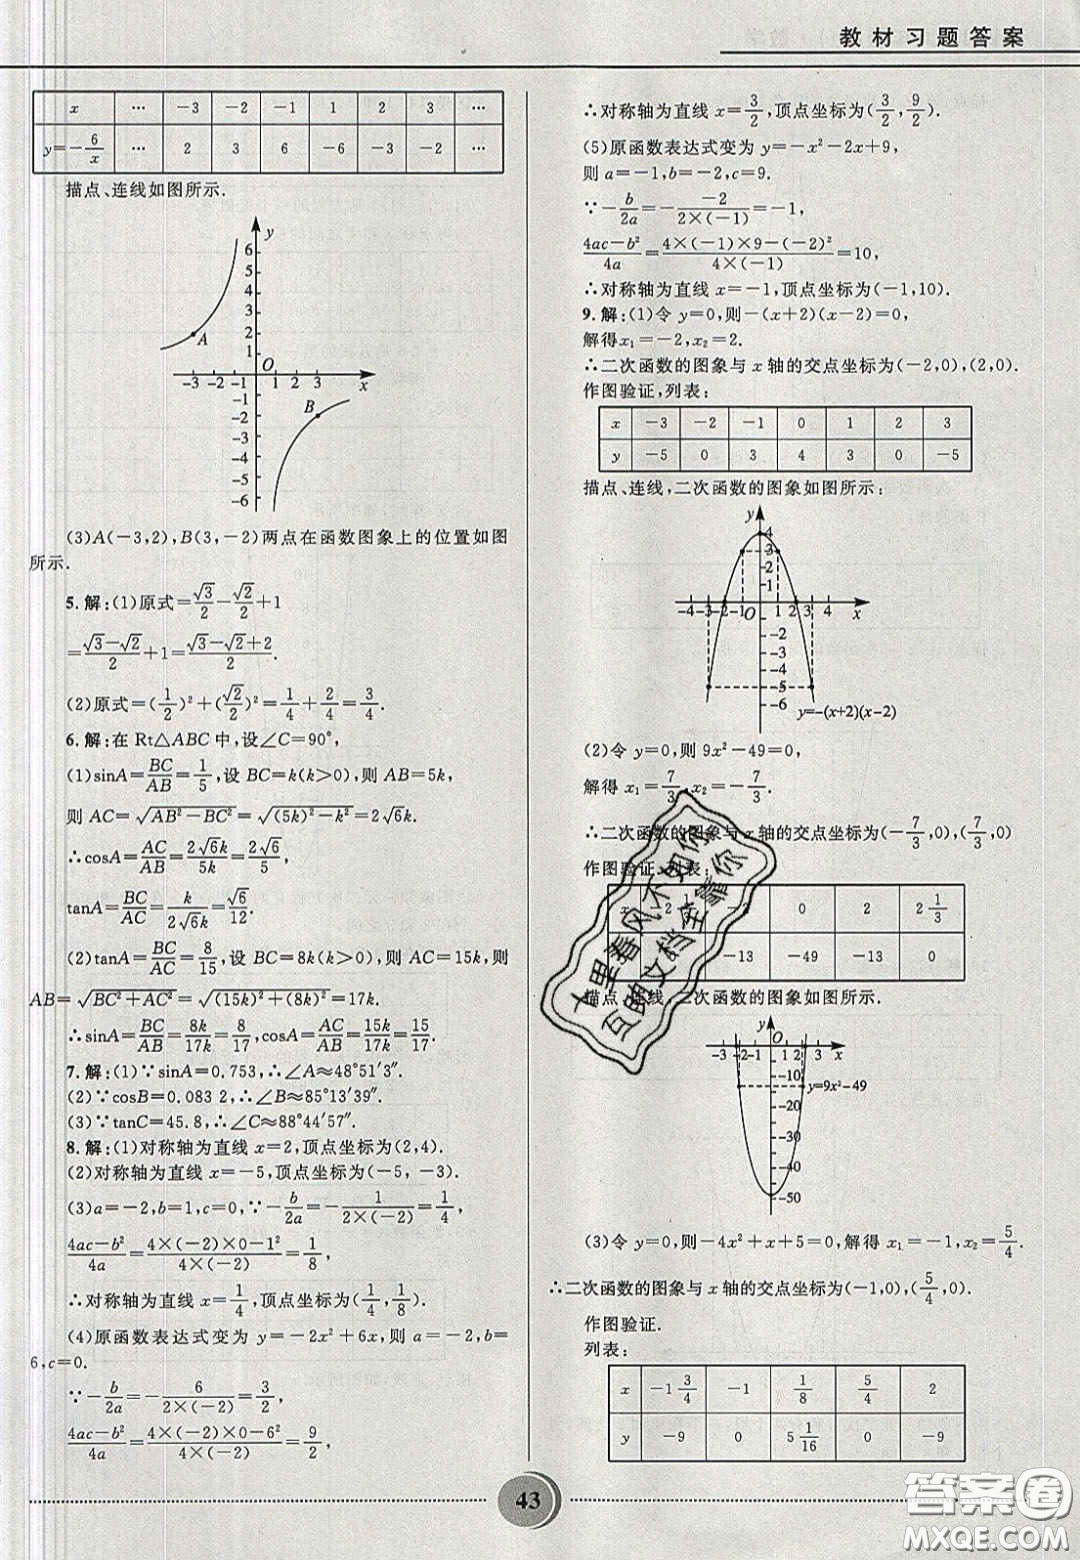 教材习题答案
x … -3 -2 -1 1 2 3 …
y=-6/x … 2 3 6 -6 -3 -2 …
描点、连线如图所示.
y
6
5
4
3
2
1
A
O
-3 -2 -1 1 2 3 x
-1
-2
-3
-4
-5
-6
B
(3)A(-3,2),B(3,-2)两点在函数图象上的位置如图
所示.
5.解:(1)原式=√3/2-√2/2+1
=(√3-√2)/2+1=(√3-√2+2)/2.
(2)原式=(1/2)²+(√2/2)²=1/4+2/4=3/4.
6.解:在Rt△ABC中,设∠C=90°,
(1)sinA=BC/AB=1/5,设BC=k(k>0),则AB=5k,
则AC=√(AB²-BC²)=√((5k)²-k²)=2√6k.
∴cosA=AC/AB=2√6k/5k=2√6/5,
tanA=BC/AC=k/2√6k=√6/12.
(2)tanA=BC/AC=8/15,设BC=8k(k>0),则AC=15k,则
AB=√(BC²+AC²)=√((15k)²+(8k)²)=17k.
∴sinA=BC/AB=8k/17k=8/17,cosA=AC/AB=15k/17k=15/17.
7.解:(1)∵sinA=0.753,∴∠A≈48°51′3″.
(2)∵cosB=0.083 2,∴∠B≈85°13′39″.
(3)∵tanC=45.8,∴∠C≈88°44′57″.
8.解:(1)对称轴为直线x=2,顶点坐标为(2,4).
(2)对称轴为直线x=-5,顶点坐标为(-5,-3).
(3)a=-2,b=1,c=0,∵-b/2a=-1/(2×(-2))=1/4,
(4ac-b²)/4a=(4×(-2)×0-1²)/(4×(-2))=1/8,
∴对称轴为直线x=1/4,顶点坐标为(1/4,1/8).
(4)原函数表达式变为y=-2x²+6x,则a=-2,b=
6,c=0.
∵-b/2a=-6/(2×(-2))=3/2,
(4ac-b²)/4a=(4×(-2)×0-6²)/(4×(-2))=9/2,
∴对称轴为直线x=3/2,顶点坐标为(3/2,9/2).
(5)原函数表达式变为y=-x²-2x+9,
则a=-1,b=-2,c=9.
∵-b/2a=-(-2)/(2×(-1))=-1,
(4ac-b²)/4a=(4×(-1)×9-(-2)²)/(4×(-1))=10,
∴对称轴为直线x=-1,顶点坐标为(-1,10).
9.解:(1)令y=0,则-(x+2)(x-2)=0,
解得x₁=-2,x₂=2.
∴二次函数的图象与x轴的交点坐标为(-2,0),(2,0).
作图验证,列表:
x -3 -2 -1 0 1 2 3
y -5 0 3 4 3 0 -5
描点、连线,二次函数的图象如图所示:
y
4
3
2
1
-4 -3 -2 -1 O 1 2 3 4 x
-2
-3
-4
-5
-6
y=-(x+2)(x-2)
(2)令y=0,则9x²-49=0,
解得x₁=7/3,x₂=-7/3.
∴二次函数的图象与x轴的交点坐标为(-7/3,0),(7/3,0)
作图验证,列表:
x -2 0 2 2 1/3
-13 -49 -13 0
描点、连线,二次函数的图象如图所示.
y
-3 -2 -1 O 1 2 3 x
-10
-20
-30
-40
-50
y=9x²-49
(3)令y=0,则-4x²+x+5=0,解得x₁=-1,x₂=5/4.
∴二次函数的图象与x轴的交点坐标为(-1,0),(5/4,0).
作图验证.
列表:
x -1 3/4 -1 1/8 5/4 2
y -9 0 5 1/16 0 -9
十里春风不如你
互助文档全靠你
43
答案圈
MXQE.COM